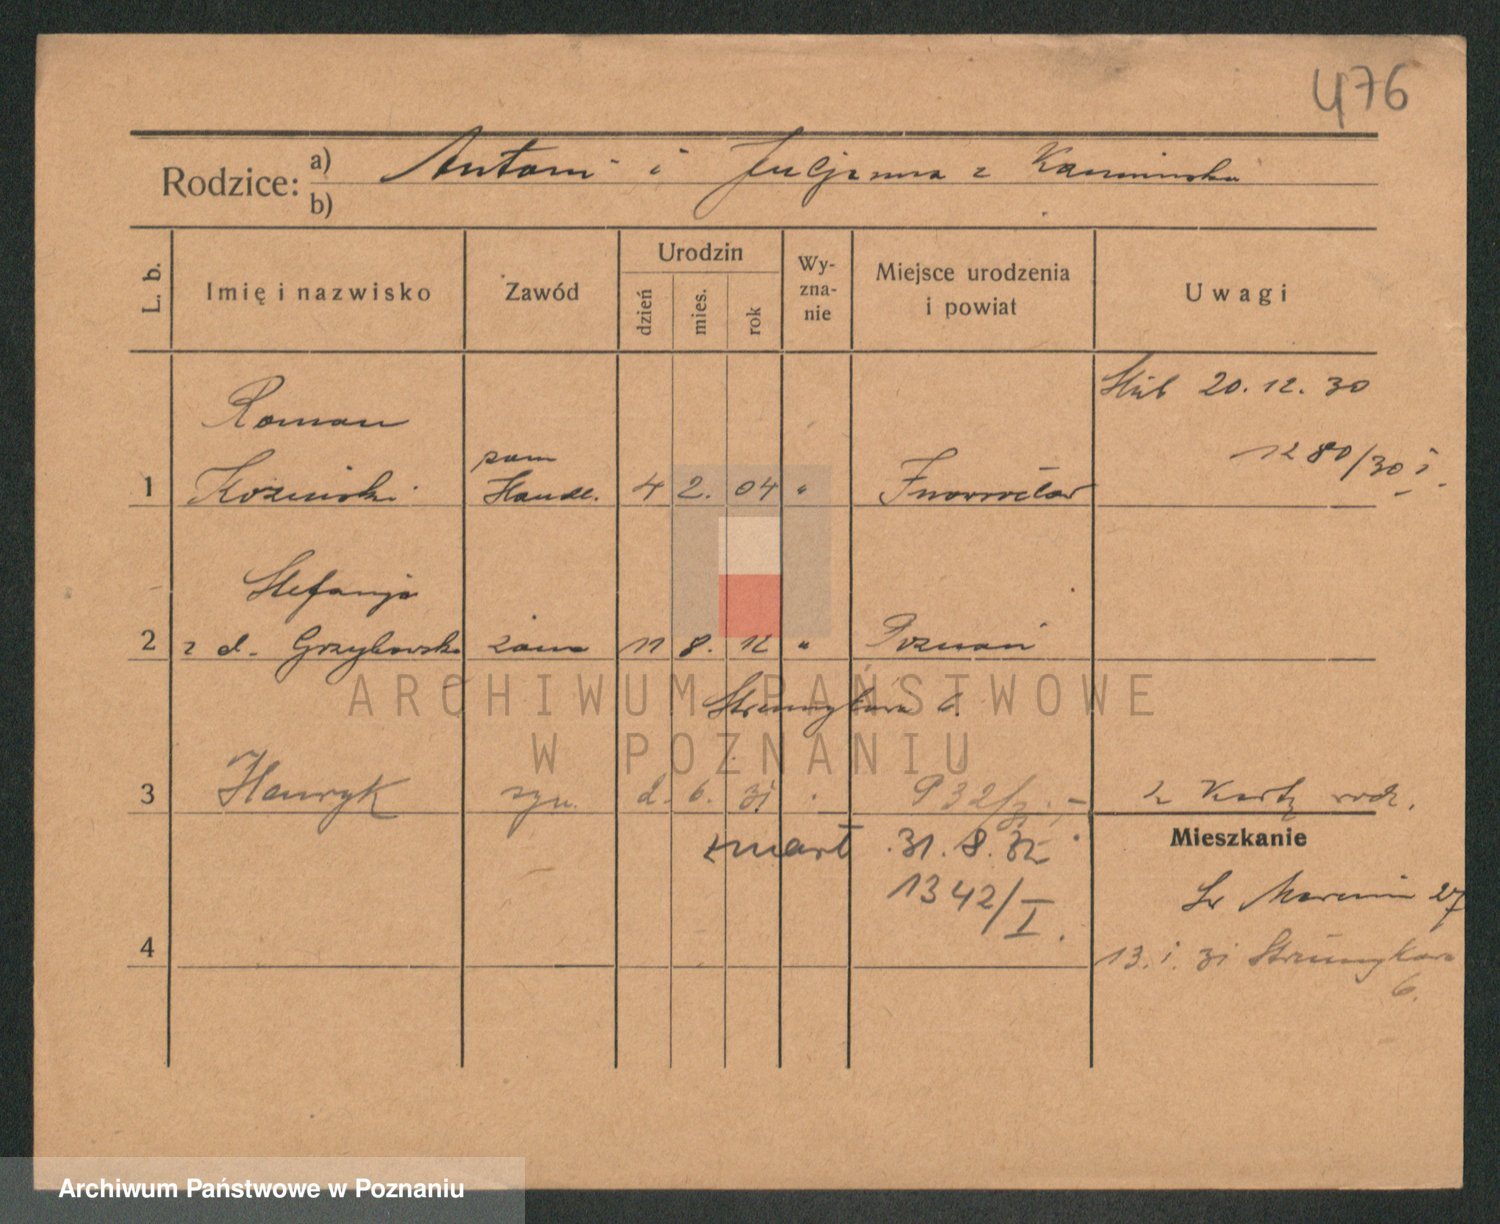 476
Rodzice: a) Antoni i Juljanna z Kaminska
b)
L. b.
Imię i nazwisko
Zawód
Urodzin
dzień
mies.
rok
Wy-
zna-
nie
Miejsce urodzenia
i powiat
Uwagi
Ślub 20. 12. 30
1280/30 I.
Roman
1 Koziński pom
Handl. 4 2. 04 " Inowrocław
Stefanja
2 z d. Grzybowska żona 11 8. 12 " Poznań
ARCHIWUM PAŃSTWOWE
Strumykowa 6.
W POZNANIU
3 Henryk syn. 6. 31 932/ z Karty rodz.
zmarł 31. 8. 32
1342/I.
Mieszkanie
Św Marcin 27
13. i. 31 Strumykowa
6.
4
Archiwum Państwowe w Poznaniu